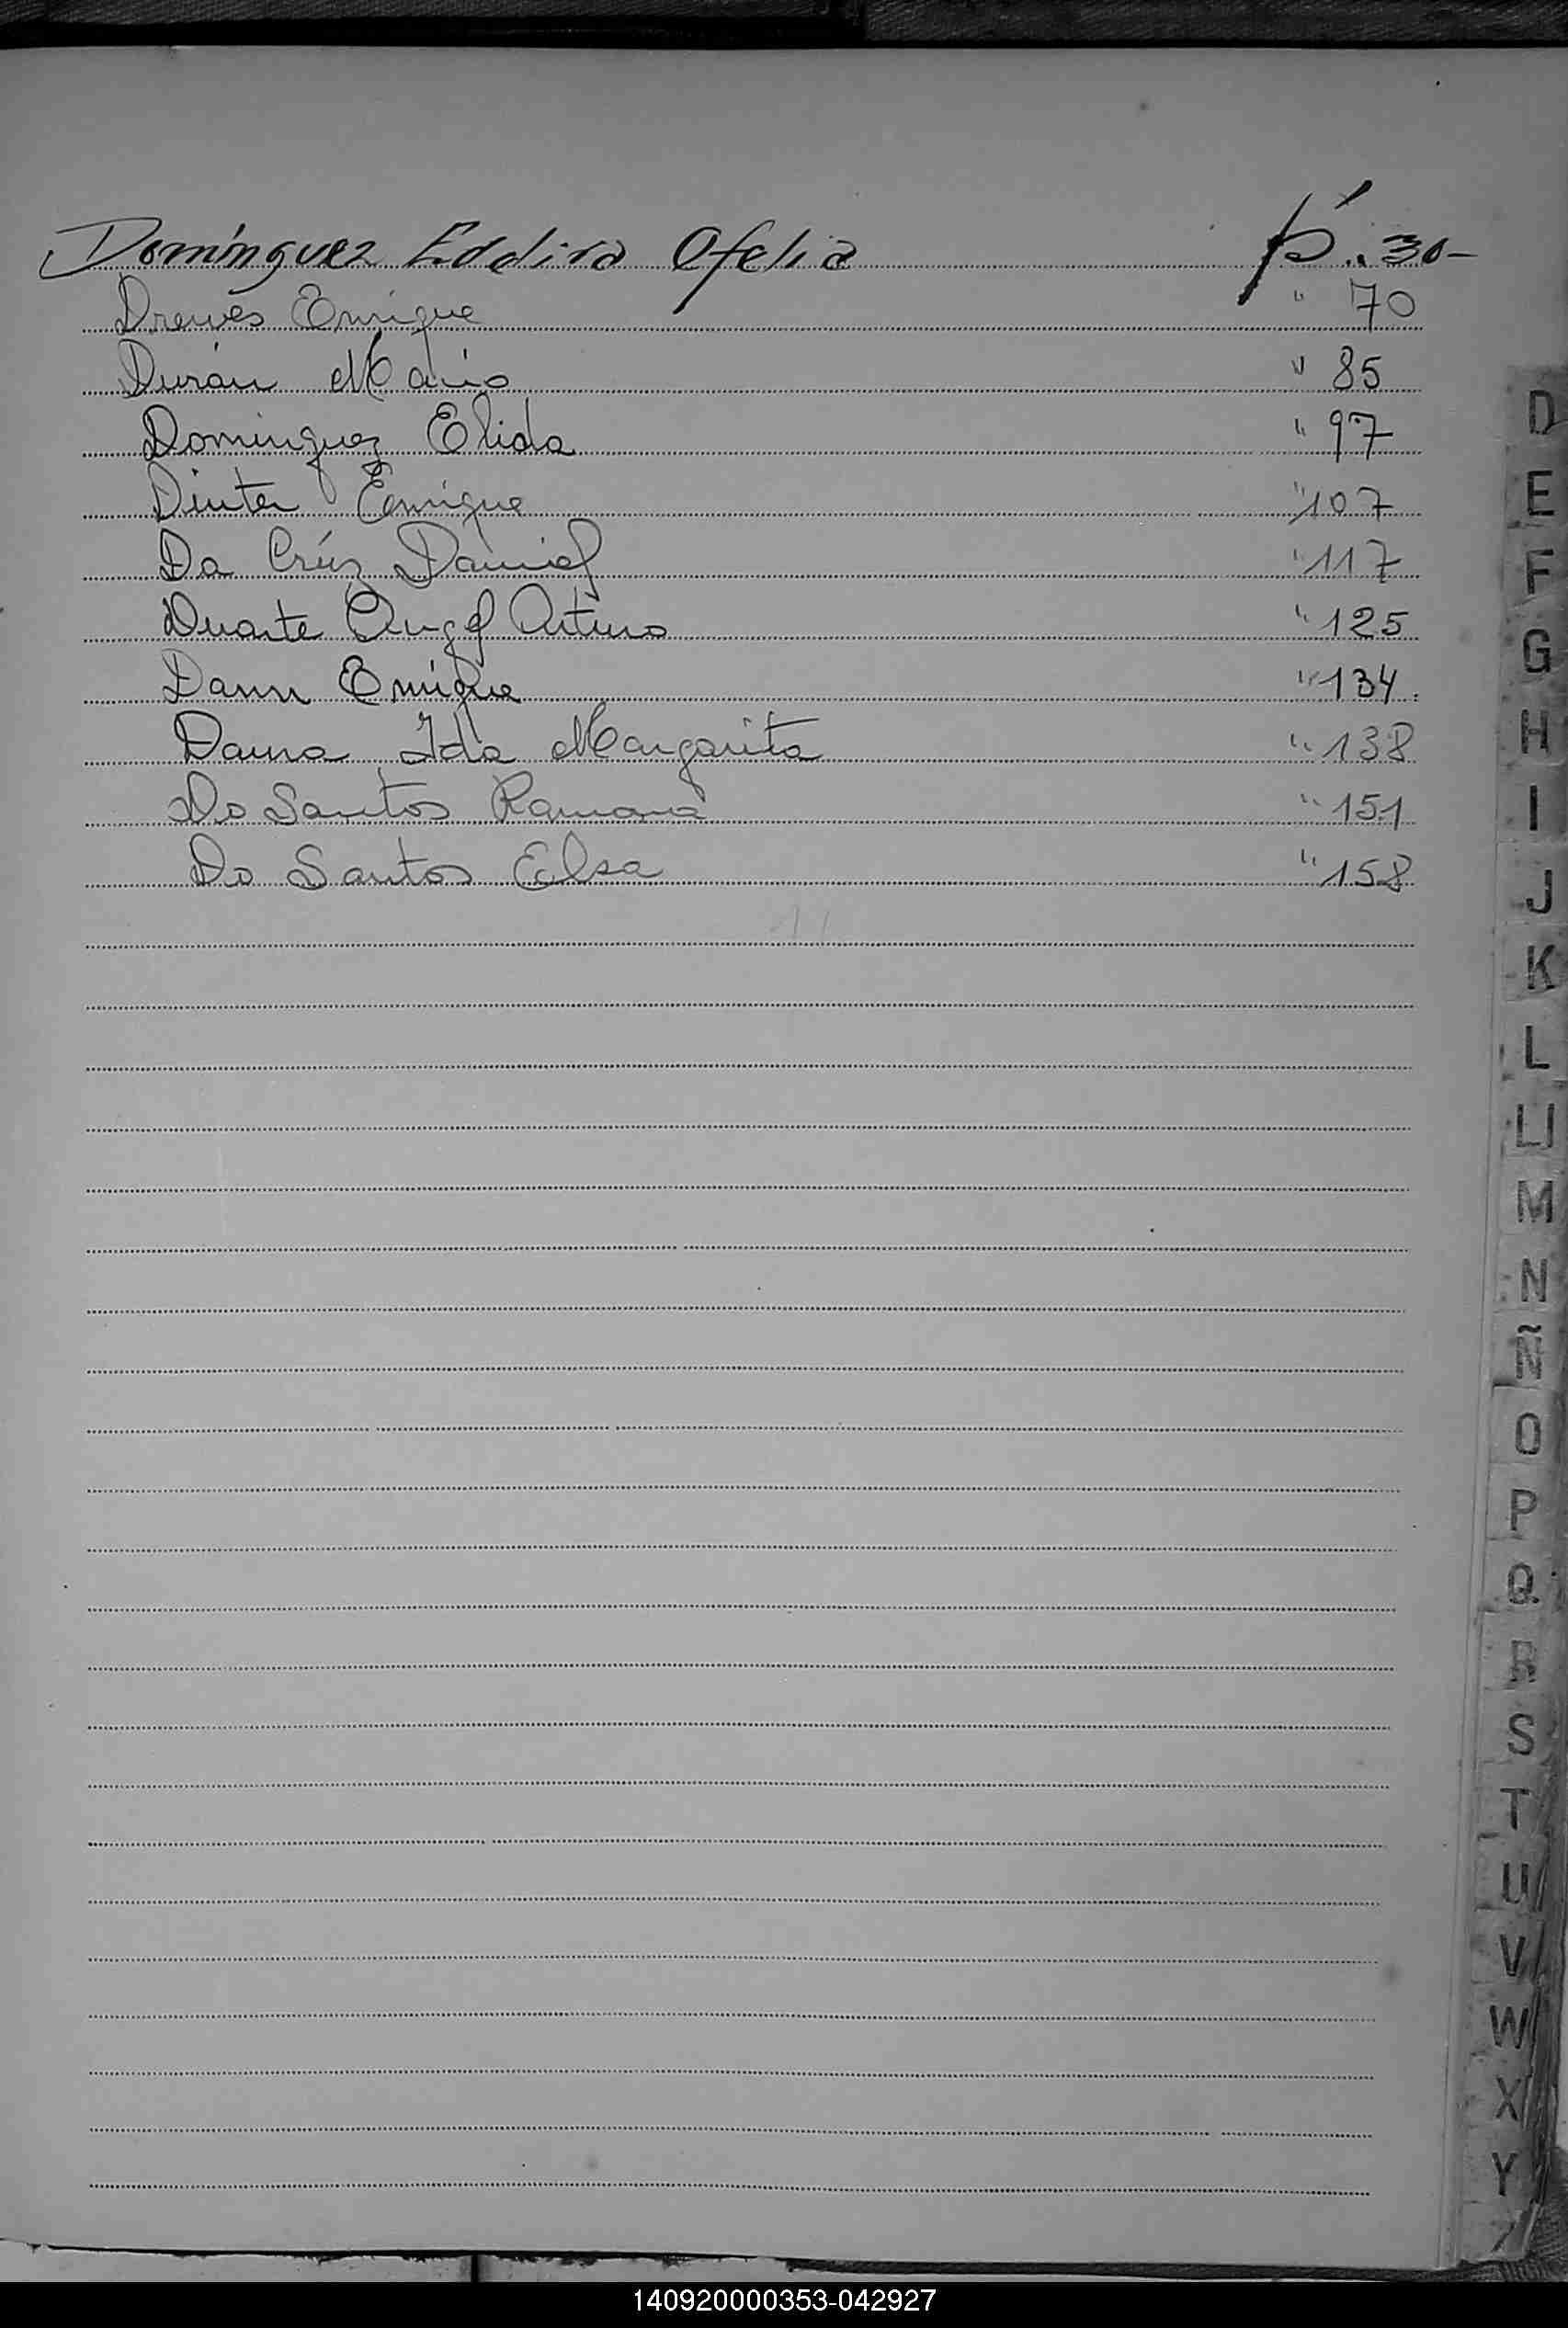 Domínguez Eddira Ofelia P. 30-
Drewes Enrique " 70
Durán Mario " 85
Dominguez Elida " 97
Dinter Enrique " 107
Da Crúz Daniel " 117
Duarte Angel Arturo " 125
Dann Enrique " 134
Dama Ida Margarita " 138
Do Santos Ramona " 151
Do Santos Elsa " 158
11
D
E
F
G
H
I
J
K
L
Ll
M
N
Ñ
O
P
Q
R
S
T
U
V
W
X
Y
140920000353-042927